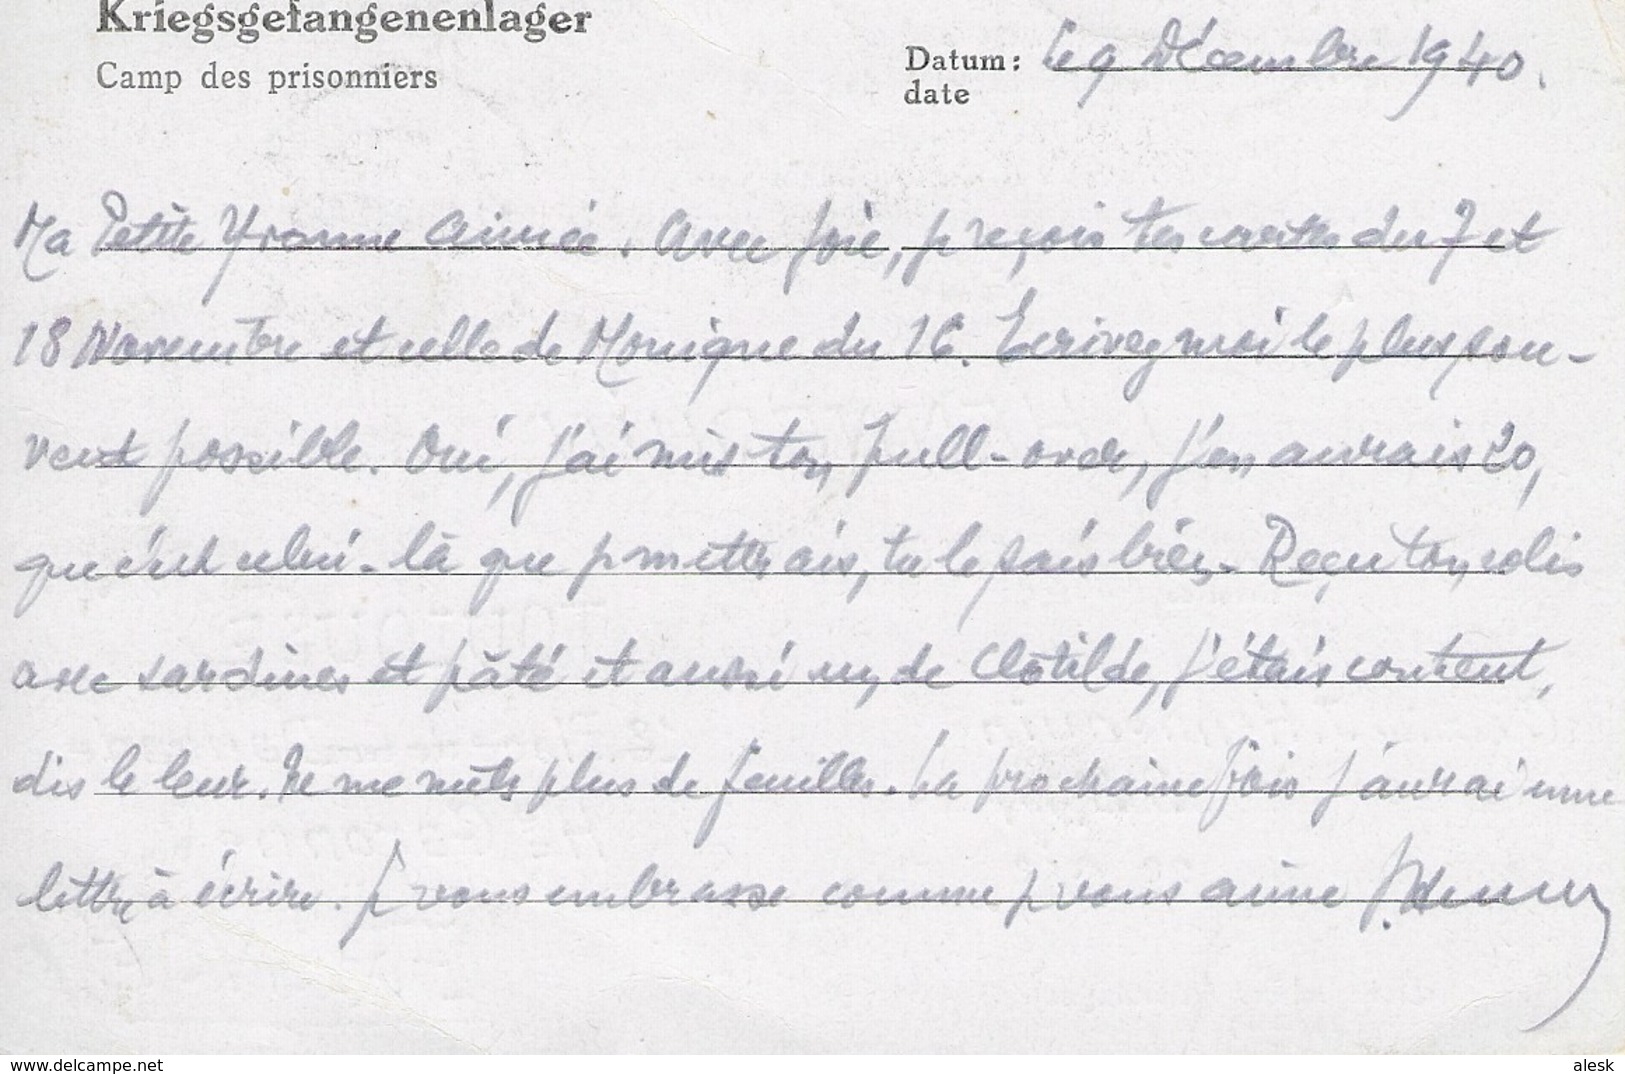 Kriegsgefangenenlager
Camp des prisonniers
Datum: le 9 Décembre 1940.
date
Ma Petite Yvonne aimée. Avec joie, je reçois tes cartes du 7 et
18 Novembre et celle de Monique du 16. Ecrivez moi le plus sou-
vent possible. Oui, j'ai mis ton pull-over, j'en aurais 20,
que c'est celui-là que je mettrais, tu le sais bien. Reçu ton colis
avec sardines et pâté et aussi un de Clotilde, j'étais content,
dis le leur. Ne me mets plus de feuilles. La prochaine fois j'aurai une
lettre à écrire. Je vous embrasse comme je vous aime
www.delcampe.net
alesk